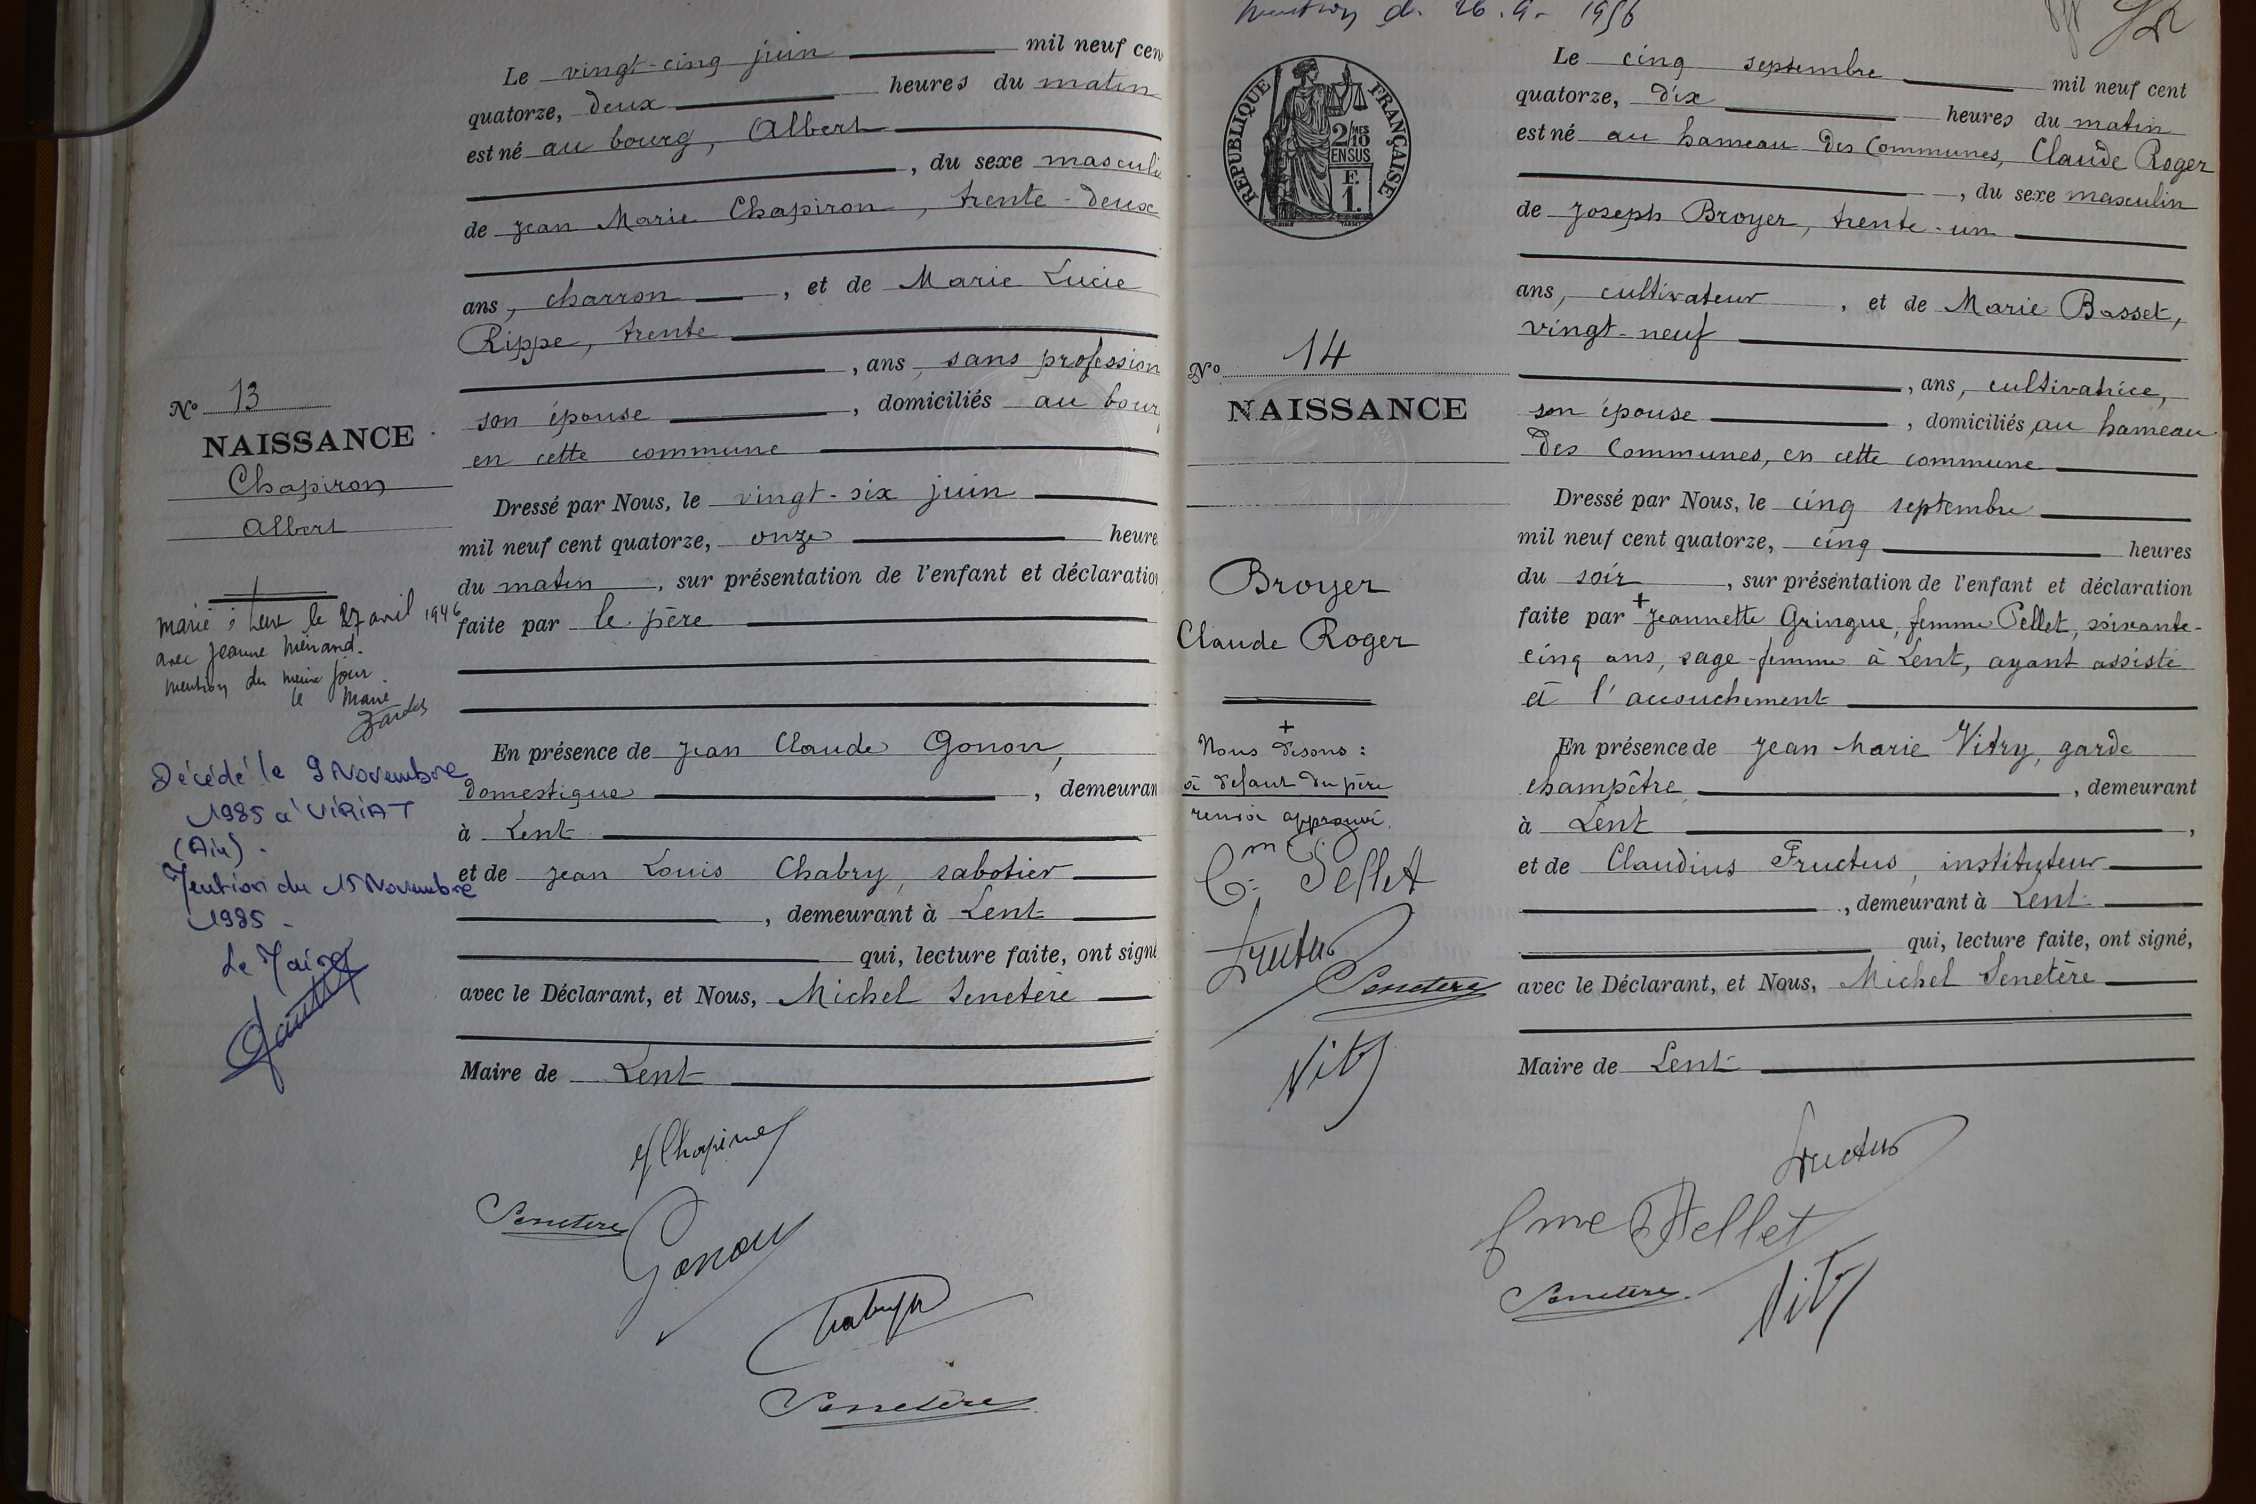 Le vingt-cinq juin mil neuf cen
quatorze, deux heures du matin
est né au bourg, Albert
, du sexe masculi
de Jean Marie Chapiron, trente-deux
ans, charron, et de Marie Lucie
Rippe, trente
, ans, sans profession
son épouse, domiciliés au bour
en cette commune
Dressé par Nous, le vingt-six juin
mil neuf cent quatorze, onze heure
du matin, sur présentation de l'enfant et déclaratio
faite par le père
En présence de Jean Claude Gonon,
domestique, demeuran
à Lent
et de Jean Louis Chabry, sabotier
, demeurant à Lent
qui, lecture faite, ont signé
avec le Déclarant, et Nous, Michel Senetère
Maire de Lent
Nº 13
NAISSANCE
Chapiron
Albert
marié à Lent le 27 avril 1946
avec Jeanne
mention du même jour.
le Maire
Décédé le 9 Novembre
1985 à VIRIAT
(Ain).
Mention du 15 Novembre
1985 -
Le Maire
Senetère
Gonon
Senetère
mention d. 26.9.1956
RÉPUBLIQUE FRANÇAISE
2/10MES
EN SUS
F.
1.
Nº 14
NAISSANCE
Broyer
Claude Roger
+
Nous disons :
à défaut du père
renvoi approuvé.
Pellet
Fructus
Senetère
Vitry
Le cinq septembre mil neuf cent
quatorze, dix heures du matin
est né au hameau des Communes, Claude Roger
, du sexe masculin
de Joseph Broyer, trente-un
ans, cultivateur, et de Marie Basset,
vingt-neuf
, ans, cultivatrice,
son épouse, domiciliés au hameau
des Communes, en cette commune
Dressé par Nous, le cinq septembre
mil neuf cent quatorze, cinq heures
du soir, sur présentation de l'enfant et déclaration
faite par + Jeannette Gringue, femme Pellet, soixante-
cinq ans, sage-femme à Lent, ayant assisté
à l'accouchement
En présence de Jean Marie Vitry, garde
champêtre, demeurant
à Lent,
et de Claudius Fructus, instituteur
, demeurant à Lent
qui, lecture faite, ont signé,
avec le Déclarant, et Nous, Michel Senetère
Maire de Lent
Fructus
fme Pellet
Senetère
Vitry